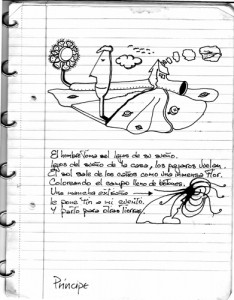 El hombre toma sol lejos de su sueño.
Lejos del sueño de la casa, los pájaros vuelan.
El sol sale de los cañones como una inmensa flor.
Coloreando el campo lleno de
Una mancha extraña
le pone fin a mi cuento.
Y parto para otras tierras.
Príncipe